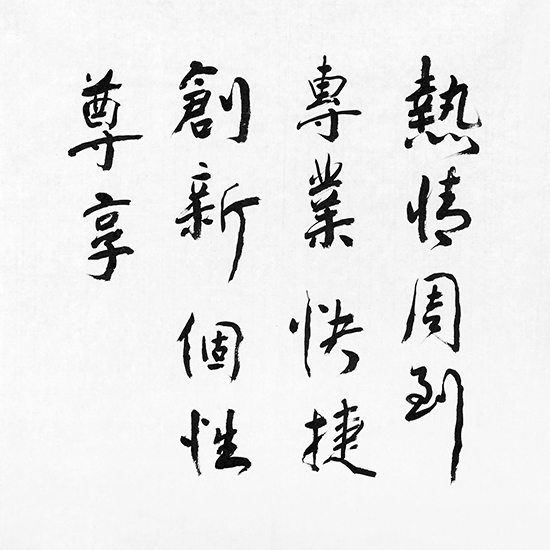 熱情周到
專業快捷
創新個性
尊享